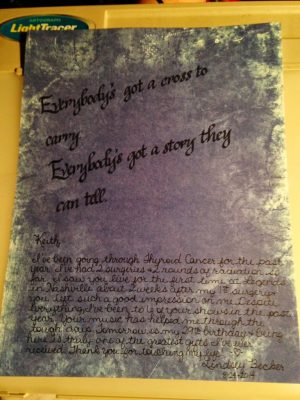 ARTOGRAPH
LightTracer
Everybody's got a cross to
carry.
Everybody's got a story they
can tell.
Keith,
I've been going through Thyroid Cancer for the past
year. I've had 2 surgeries & 2 rounds of radiation so
far. I saw you live for the first time at Legends
in Nashville about 2 weeks after my 1st surgery.
You left such a good impression on me. Despite
everything I've been to of your shows in the past
year. Your music has helped me through the
tough days. Tomorrow is my 29th birthday & being
here is truly one of the greatest gifts I've ever
received. Thank you for touching my life.
Lindsey Becker